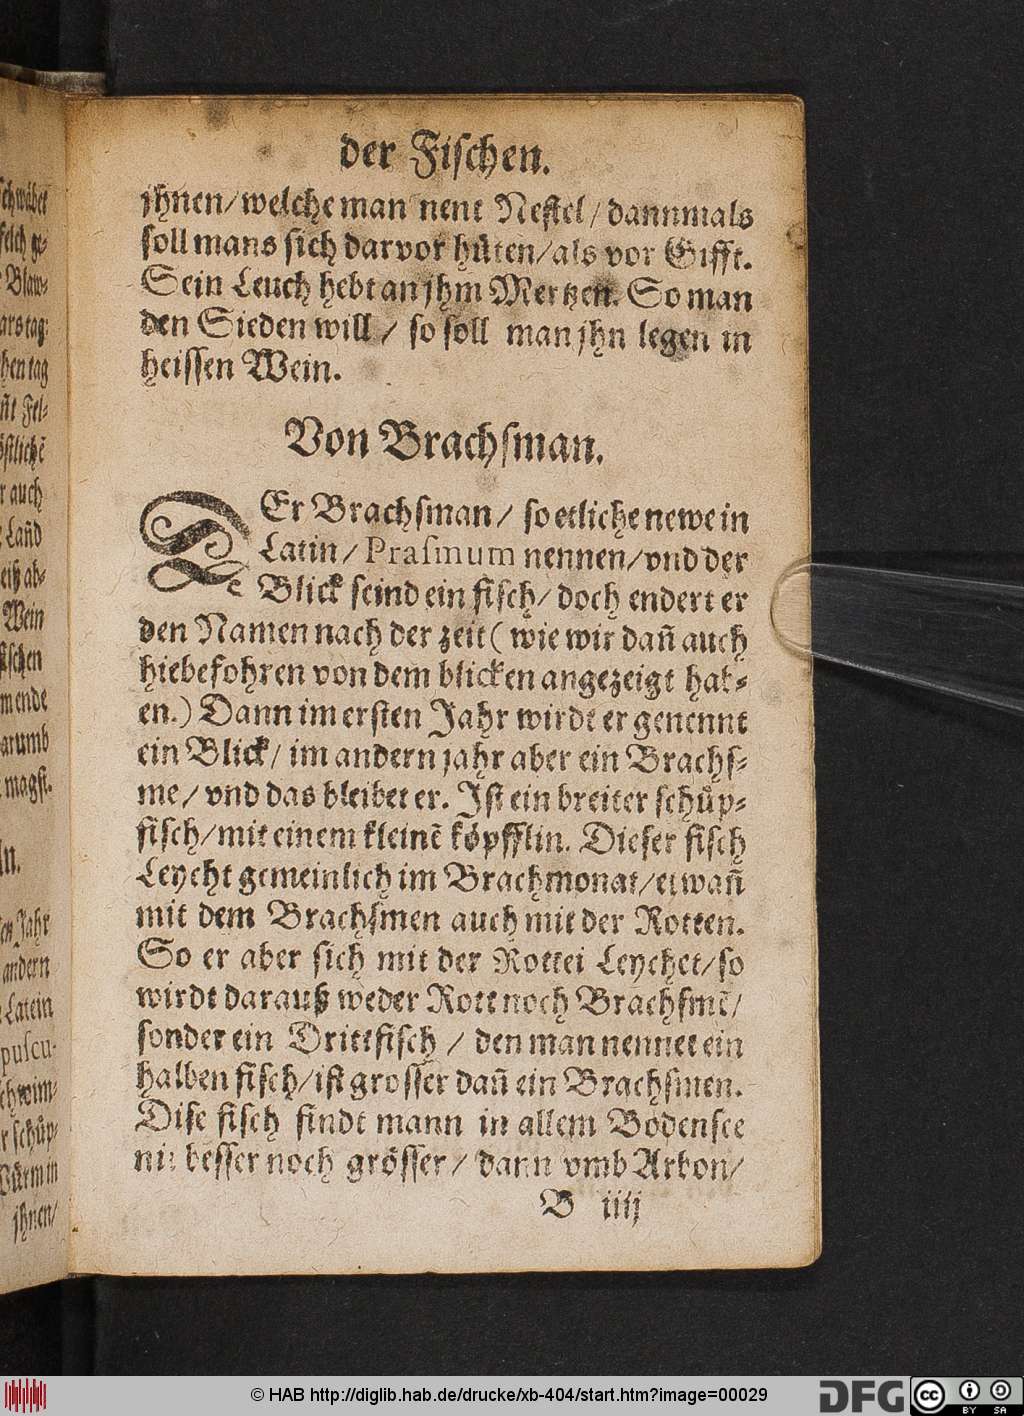 der Fischen.
jhnen/ welche man nent Nestel/ dannmals
soll mans sich darvor hüten/ als vor Gifft.
Sein Leuch hebt an jhm Mertzen. So man
den Sieden will/ so soll man jhn legen in
heissen Wein.
Von Brachsman.
DEr Brachsman/ so etliche newe in
Latin/ Prasmum nennen/ vnd der
Blick seind ein fisch/ doch endert er
den Namen nach der zeit ( wie wir dañ auch
hiebefohren von dem blicken angezeigt hab-
en.) Dann im ersten Jahr wirdt er genennt
ein Blick/ im andern jahr aber ein Brachs-
me/ vnd das bleibet er. Ist ein breiter schüp-
fisch/ mit einem kleinē köpfflin. Dieser fisch
Leycht gemeinlich im Brachmonat/ etwañ
mit dem Brachsmen auch mit der Rotten.
So er aber sich mit der Rottei Leychet/ so
wirdt darauß weder Rott noch Brachsmē/
sonder ein Drittfisch/ den man nennet ein
halben fisch/ ist grosser dañ ein Brachsmen.
Dise fisch findt mann in allem Bodensee
nit besser noch grösser/ dann vmb Arbon/
B iiij
schwäbet
Blaw-
hen tag
r auch
Wein
mende
arumb
magst.
Jahr
andern
Latein
puscu-
schwim-
schüp-
jhnen/
© HAB http://diglib.hab.de/drucke/xb-404/start.htm?image=00029
DFG
cc BY SA